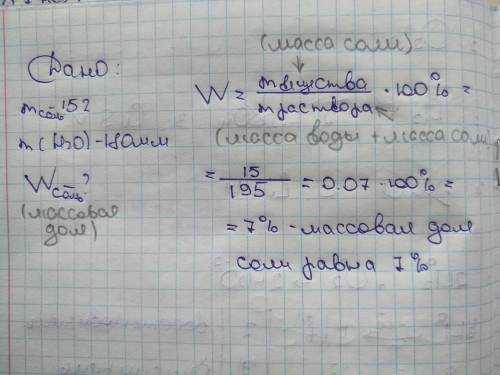 Дано:
m соль 15г
m(H2O) - 180мл
W соль ?
(массовая
доля)
(масса соли)
W = m вещества / m раствора · 100% =
(масса воды + масса соли
= 15 / 195 = 0.07 · 100% =
= 7% - массовая доля
соли равна 7%